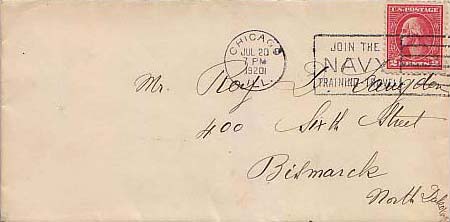 U.S. POSTAGE
2 CENTS 2
CHICAGO
JUL 20
7 PM
1920
ILL.
JOIN THE
NAVY
TRAINING-TRAVEL
Mr. Roy
400 Sixth Street
Bismarck
North Dakota